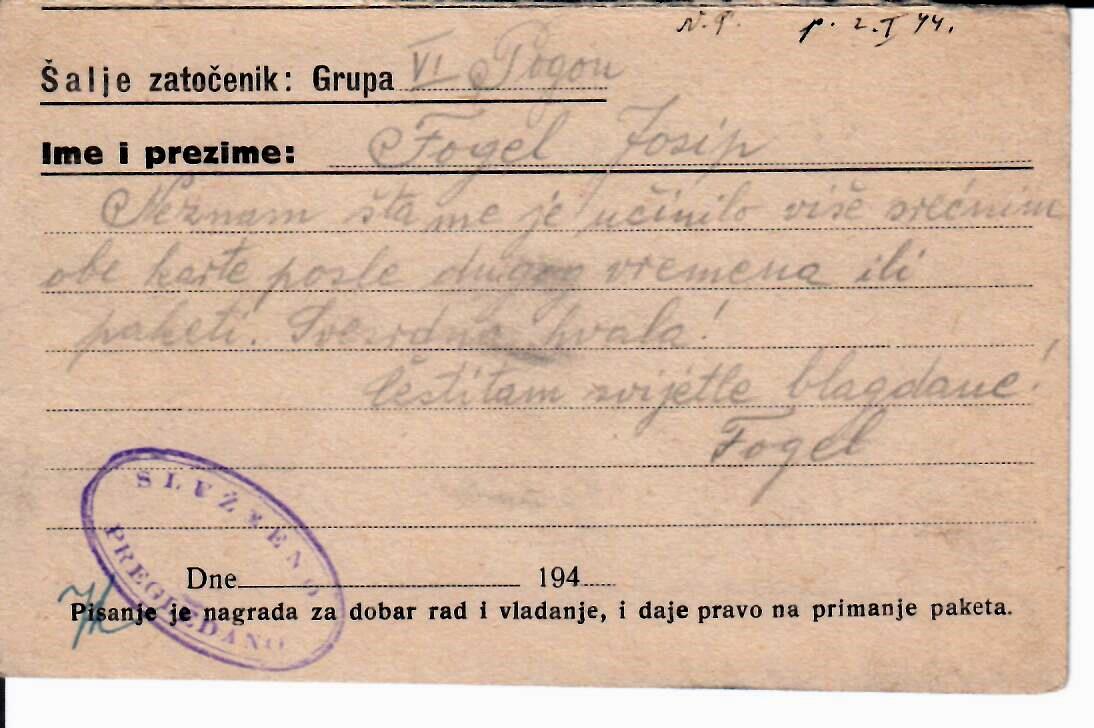 N.P. p. 2.I 44.
Šalje zatočenik: Grupa VI Pogon
Ime i prezime: Fogel Josip
Neznam šta me je učinilo više srećnim
obe karte posle dugog vremena ili
paketi. Svesrdna hvala!
Čestitam svijetle blagdane!
Fogel
SLUŽBENO
PREGLEDANO
Dne 194
Pisanje je nagrada za dobar rad i vladanje, i daje pravo na primanje paketa.